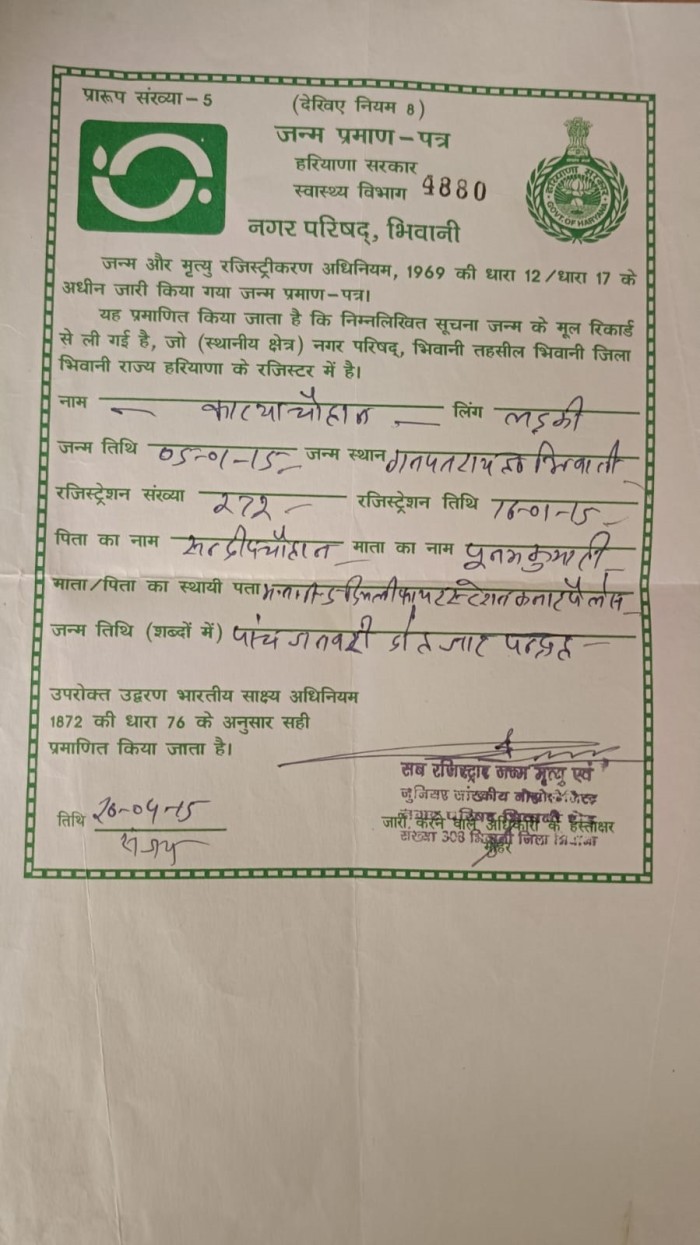 प्रारूप संख्या-5
(देखिए नियम 8)
जन्म प्रमाण-पत्र
हरियाणा सरकार
स्वास्थ्य विभाग 4880
नगर परिषद्, भिवानी
GOVT. OF HARYANA
जन्म और मृत्यु रजिस्ट्रीकरण अधिनियम, 1969 की धारा 12/धारा 17 के
अधीन जारी किया गया जन्म प्रमाण-पत्र।
यह प्रमाणित किया जाता है कि निम्नलिखित सूचना जन्म के मूल रिकार्ड
से ली गई है, जो (स्थानीय क्षेत्र) नगर परिषद्, भिवानी तहसील भिवानी जिला
भिवानी राज्य हरियाणा के रजिस्टर में है।
नाम - काव्या चौहान - लिंग लड़की
जन्म तिथि 05-01-15 जन्म स्थान गनपतराय ह० भिवानी
रजिस्ट्रेशन संख्या 272 - रजिस्ट्रेशन तिथि 16-01-15
पिता का नाम सन्दीप चौहान माता का नाम पूनम कुमारी
माता/पिता का स्थायी पता फायर स्टेशन कनाट पैलेस
जन्म तिथि (शब्दों में) पांच जनवरी दो हजार पन्द्रह -
उपरोक्त उद्वरण भारतीय साक्ष्य अधिनियम
1872 की धारा 76 के अनुसार सही
प्रमाणित किया जाता है।
सब रजिस्ट्रार जन्म मृत्यु एवं
जुनियर सांख्यकीय
नगर परिषद भिवानी
जारी करने वाले अधिकारी के हस्ताक्षर
संख्या 308 भिवानी जिला भिवानी
मोहर
तिथि 20-04-15